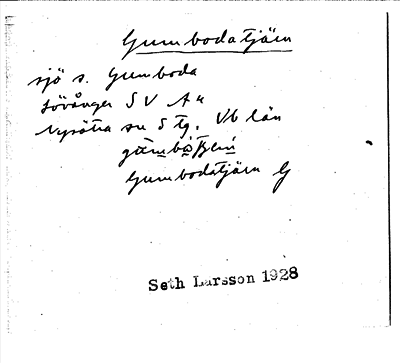 Gumbodatjärn
sjö s. Gumboda
Lövånger SV A4
Nysätra sn S tg. Vb län
Gumbodatjärn G
Seth Larsson 1928